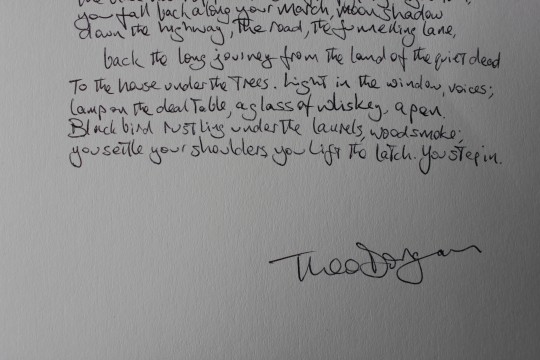 you fall back along your march, moonshadow
down the highway, the road, the funneling lane,
back the long journey from the land of the quiet dead
To the house under the trees. Light in the window, voices;
lamp on the deal table, a glass of whiskey, a pen.
Blackbird rustling under the laurels, woodsmoke;
you settle your shoulders, you lift the latch. You step in.
Theo Dorgan